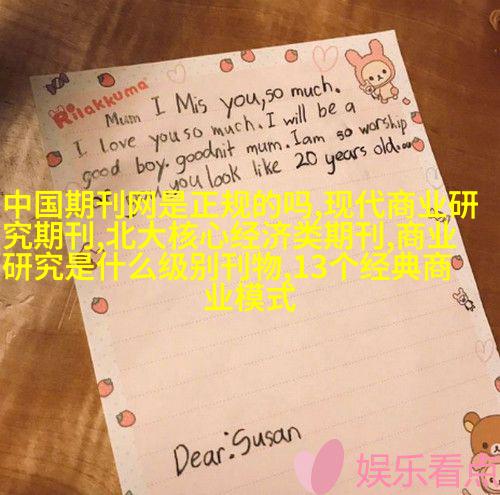 Rilakkuma
Mum I Mis you,so much.
I love you so much. I will be a
good boy. goodnit mum. I am so worship
you look like 20 years old.
中国期刊网是正规的吗,现代商业研
究期刊,北大核心经济类期刊,商业
研究是什么级别刊物,13个经典商
业模式
Dear:Susan
娱乐看点